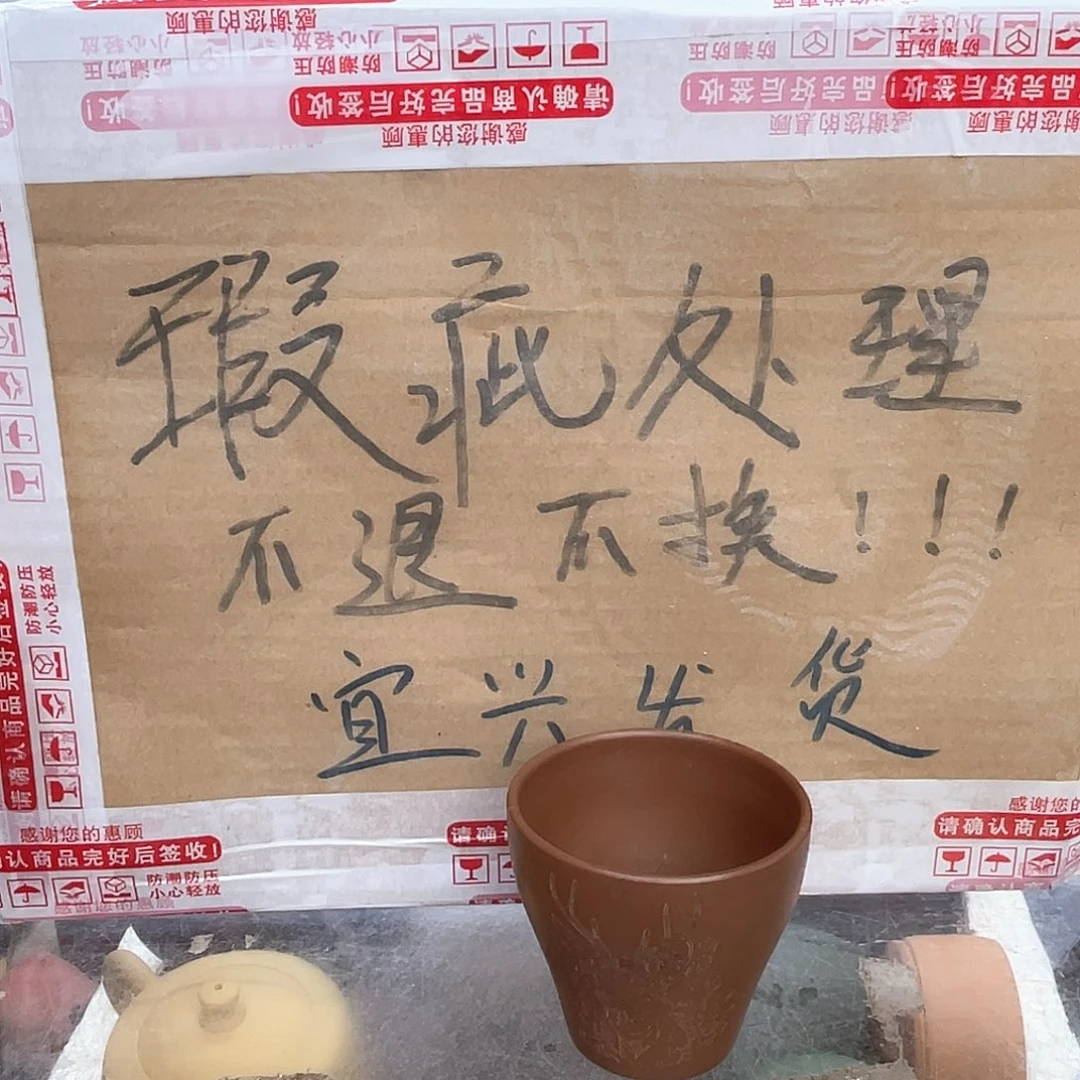 感谢您的惠顾
小心轻放
防潮防压
小心轻放
防潮防压
小心轻放
防潮防压
请确认商品完好后签收!
请确认商品完好后签收!
感谢您的惠顾
感谢您的惠顾
感谢您的惠顾
瑕疵处理
不退不换!!!
宜兴发货
防潮防压
小心轻放
请确认商品完好后签收
感谢您的惠顾
认商品完好后签收!
防潮防压
小心轻放
感谢您的惠顾
请确
感谢您的
请确认商品完